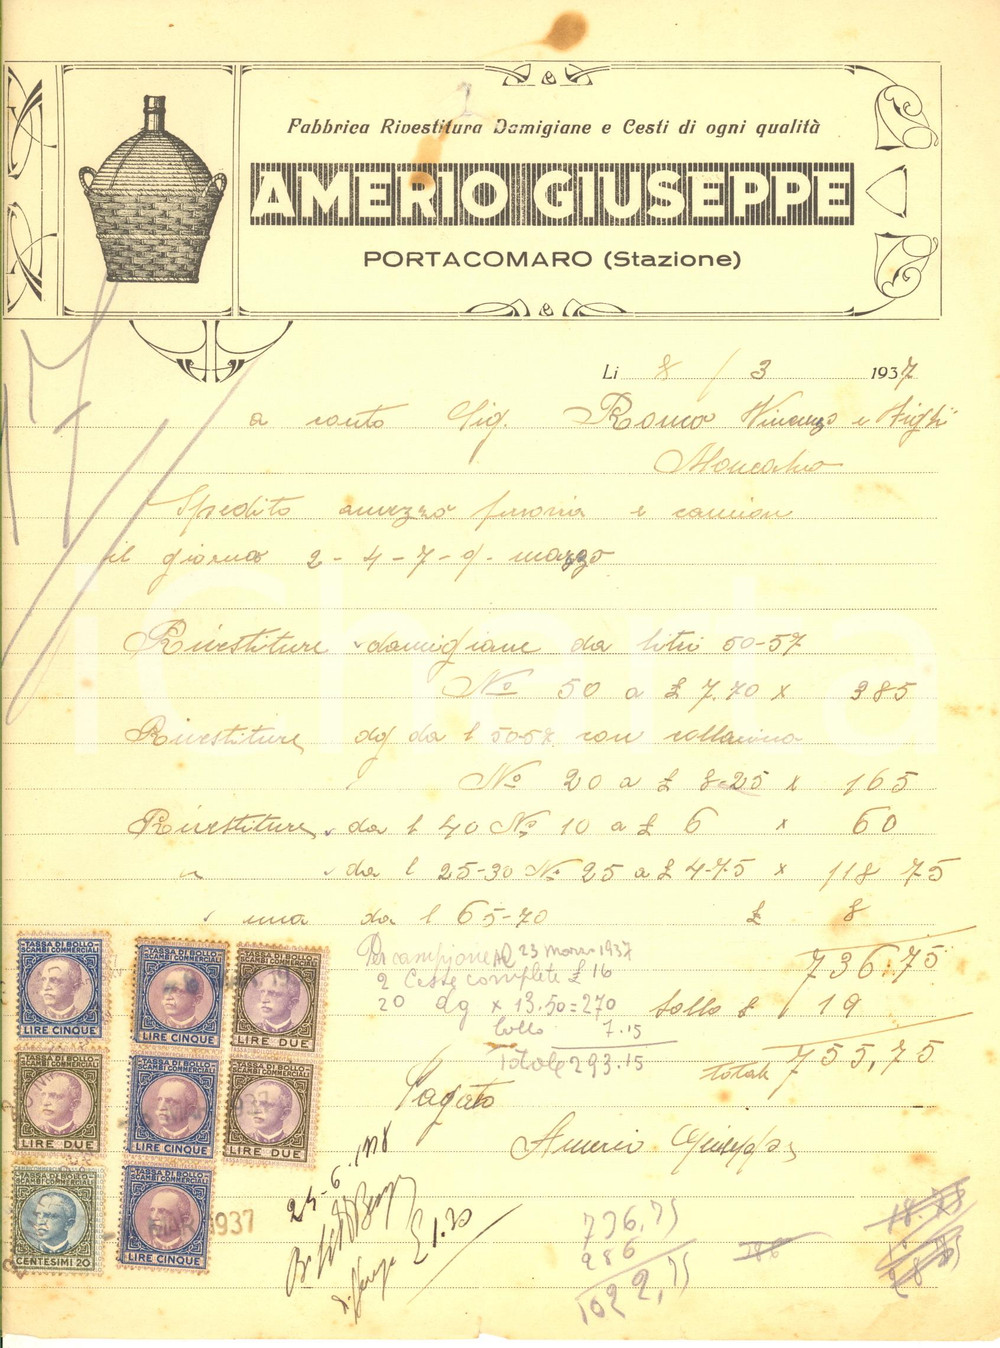 Fabbrica Rivestitura Damigiane e Cesti di ogni qualità
AMERIO GIUSEPPE
PORTACOMARO (Stazione)
Li 8 / 3 1937
a conto Sig. Ronco Vincenzo e Figli
Moncalvo
Spedito a mezzo ferrovia e camion
il giorno 2 - 4 - 7 - 9 - marzo
Rivestiture damigiane da litri 50-57
No 50 a £ 7.70 x 385
Rivestiture dg da l 50-58 con collarino
No 20 a £ 8.25 x 165
Rivestiture da l 40 No 10 a £ 6 x 60
" da l 25-30 No 25 a £ 4.75 x 118 75
una da l 65-70 £ 8
736.75
Per campione 23 marzo 1937
2 Ceste complete £ 16
20 dg x 13.50 = 270
bollo 7.15
Totale 293.15
bollo £ 19
totale 755,75
Pagato
Amerio Giuseppe
TASSA DI BOLLO
SCAMBI COMMERCIALI
LIRE CINQUE
TASSA DI BOLLO
SCAMBI COMMERCIALI
LIRE CINQUE
TASSA DI BOLLO
SCAMBI COMMERCIALI
LIRE DUE
TASSA DI BOLLO
SCAMBI COMMERCIALI
LIRE DUE
TASSA DI BOLLO
SCAMBI COMMERCIALI
LIRE CINQUE
TASSA DI BOLLO
SCAMBI COMMERCIALI
LIRE DUE
TASSA DI BOLLO
SCAMBI COMMERCIALI
CENTESIMI 20
TASSA DI BOLLO
SCAMBI COMMERCIALI
LIRE CINQUE
MAR 1937
£ 1.20
736,75
286
1022,75
iCharta